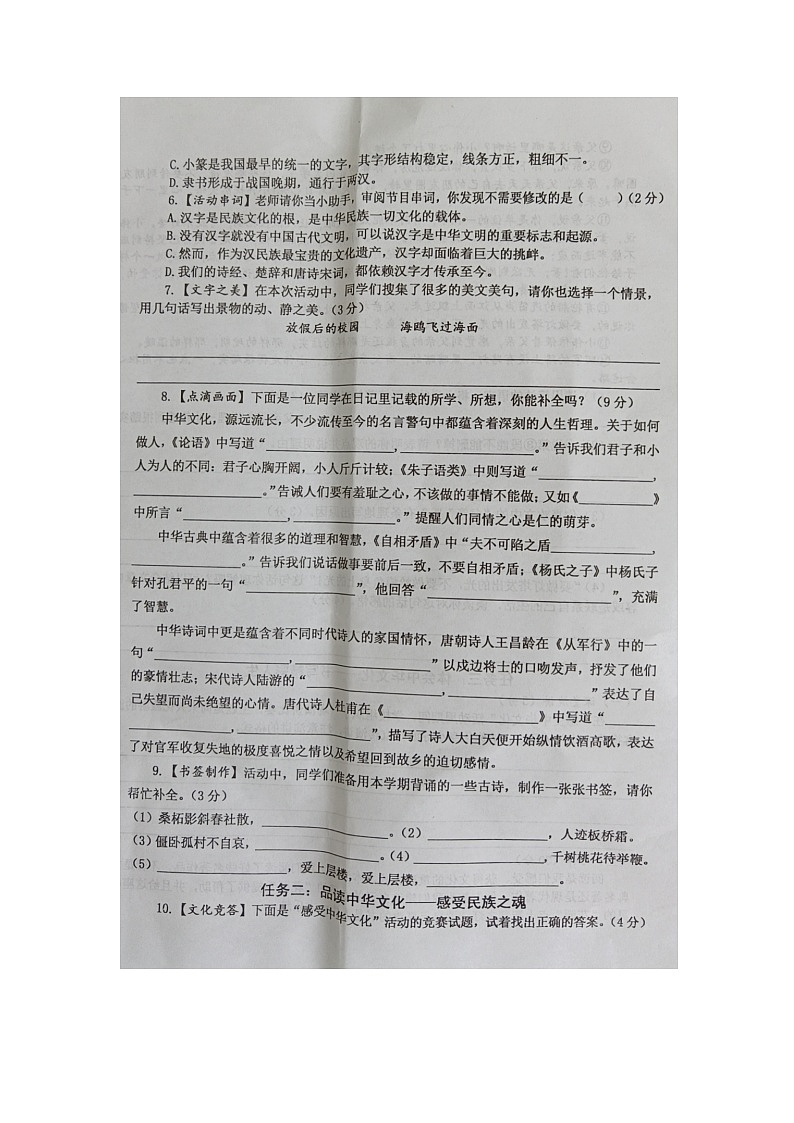 C.小篆是我国最早的统一的文字,其字形结构稳定,线条方正,粗细不一。
D.隶书形成于战国晚期,通行于两汉。
6.【活动串词】老师请你当小助手,审阅节目串词,你发现不需要修改的是( )(2分)
A.汉字是民族文化的根,是中华民族一切文化的载体。
B.没有汉字就没有中国古代文明,可以说汉字是中华文明的重要标志和起源。
C.然而,作为汉民族最宝贵的文化遗产,汉字却面临着巨大的挑衅。
D.我们的诗经、楚辞和唐诗宋词,都依赖汉字才传承至今。
7.【文字之美】在本次活动中,同学们搜集了很多的美文美句,请你也选择一个情景,
用几句话写出景物的动、静之美。(3分)
放假后的校园 海鸥飞过海面
8.【点滴画面】下面是一位同学在日记里记载的所学、所想,你能补全吗?(9分)
中华文化,源远流长,不少流传至今的名言警句中都蕴含着深刻的人生哲理。关于如何
做人,《论语》中写道“____________,____________。”告诉我们君子和小
人为人的不同:君子心胸开阔,小人斤斤计较;《朱子语类》中则写道“____________,
____________。”告诫人们要有羞耻之心,不该做的事情不能做;又如《________》
中所言“____________,____________。”提醒人们同情之心是仁的萌芽。
中华古典中蕴含着很多的道理和智慧,《自相矛盾》中“夫不可陷之盾____________,
____________。”告诉我们说话做事要前后一致,不要自相矛盾;《杨氏之子》中杨氏子
针对孔君平的一句“____________”,他回答“____________”,充满
了智慧。
中华诗词中更是蕴含着不同时代诗人的家国情怀,唐朝诗人王昌龄在《从军行》中的一
句“____________,____________”以戍边将士的口吻发声,抒发了他们
的豪情壮志;宋代诗人陆游的“____________,____________”表达了自
己失望而尚未绝望的心情。唐代诗人杜甫在《____________》中写道“________
____________,____________”,描写了诗人大白天便开始纵情饮酒高歌,表达
了对官军收复失地的极度喜悦之情以及希望回到故乡的迫切感情。
9.【书签制作】活动中,同学们准备用本学期背诵的一些古诗,制作一张张书签,请你
帮忙补全。(3分)
(1)桑柘影斜春社散,____________。(2)____________,人迹板桥霜。
(3)僵卧孤村不自哀,____________。(4)____________,千树桃花待举鞭。
(5)____________,爱上层楼,爱上层楼,____________。
任务二:品读中华文化——感受民族之魂
10.【文化竞答】下面是“感受中华文化”活动的竞赛试题,试着找出正确的答案。(4分)